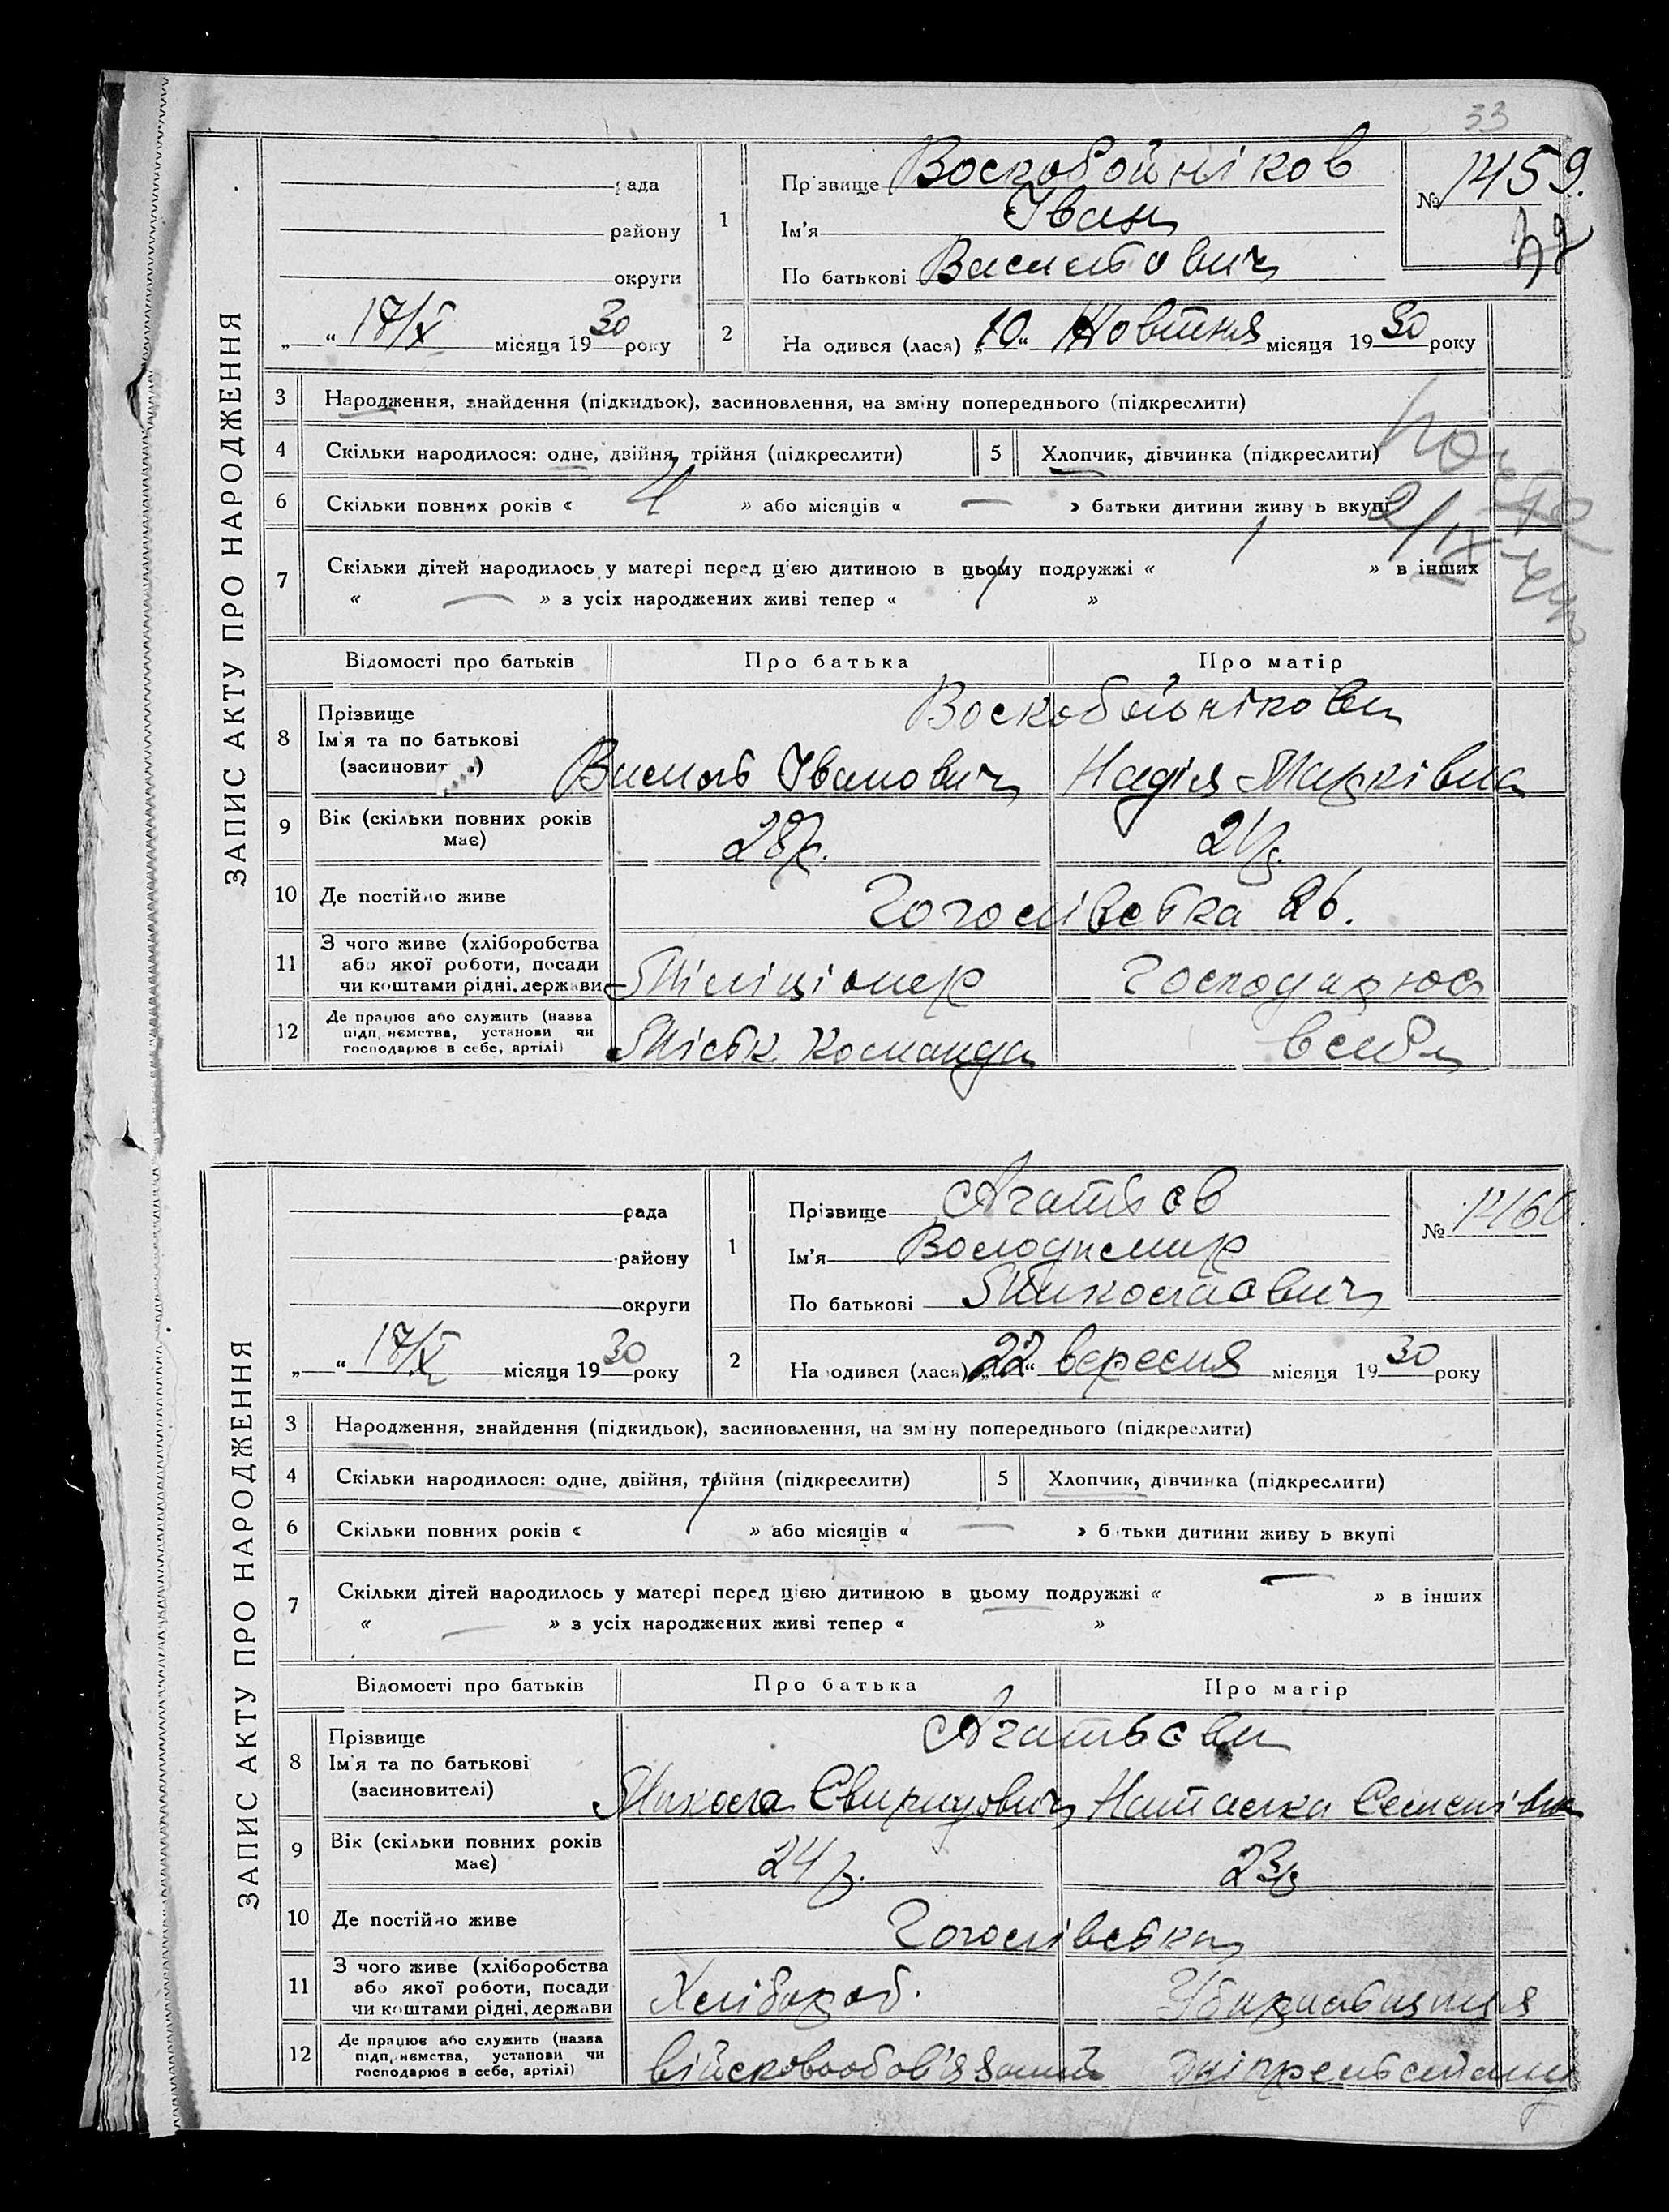 33
ЗАПИС АКТУ ПРО НАРОДЖЕННЯ
рада
району
округи
„ “ 17/X місяця 1930 року
1 Прізвище Воскобойніков
Ім'я Іван
По батькові Васильович
№ 1459.
2 На одився (лася) „10“ Жовтня місяця 1930 року
3 Народження, знайдення (підкидьок), засиновлення, на зміну попереднього (підкреслити)
4 Скільки народилося: одне, двійня, трійня (підкреслити) 5 Хлопчик, дівчинка (підкреслити)
6 Скільки повних років « 4 » або місяців « — » батьки дитини живу ь вкупі
7 Скільки дітей народилось у матері перед цією дитиною в цьому подружжі « 1 » в інших
« — » з усіх народжених живі тепер « 1 »
Відомості про батьків Про батька Про матір
8 Прізвище
Ім'я та по батькові
(засновит )
Воскобойнікови
Василь Іванович Надія Марківна
9 Вік (скільки повних років
має)
28р. 21р.
10 Де постійно живе Гоголівська 26.
11 З чого живе (хліборобства
або якої роботи, посади
чи коштами рідні, держави
Міліціонер Господарює
12 Де працює або служить (назва
підп.иємства, установи чи
господарює в себе, артілі)
Міськ команда в себе
ЗАПИС АКТУ ПРО НАРОДЖЕННЯ
рада
району
округи
„ “ 17/X місяця 1930 року
1 Прізвище Агатьєв
Ім'я Володимир
По батькові Миколаович
№ 1460.
2 На одився (лася) „22“ вересня місяця 1930 року
3 Народження, знайдення (підкидьок), засиновлення, на зм ну попереднього (підкреслити)
4 Скільки народилося: одне, двійня, трійня (підкреслити) 5 Хлопчик, дівчинка (підкреслити)
6 Скільки повних років « 1 » або місяців « — » б тьки дитини живу ь вкупі
7 Скільки дітей народилось у матері перед цією дитиною в цьому подружжі « — » в інших
« — » з усіх народжених живі тепер « »
Відомості про батьків Про батька Про матір
8 Прізвище
Ім'я та по батькові
(засиновителі)
Агатьєви
Микола Свиридович Наталка Семенівна
9 Вік (скільки повних років
має)
24р. 23р
10 Де постійно живе Гоголівська
11 З чого живе (хліборобства
або якої роботи, посади
чи коштами рідні, держави
Хлібороб. Збиральниця
12 Де працює або служить (назва
підп.иємства, установи чи
господарює в себе, артілі)
військовообов'язаний